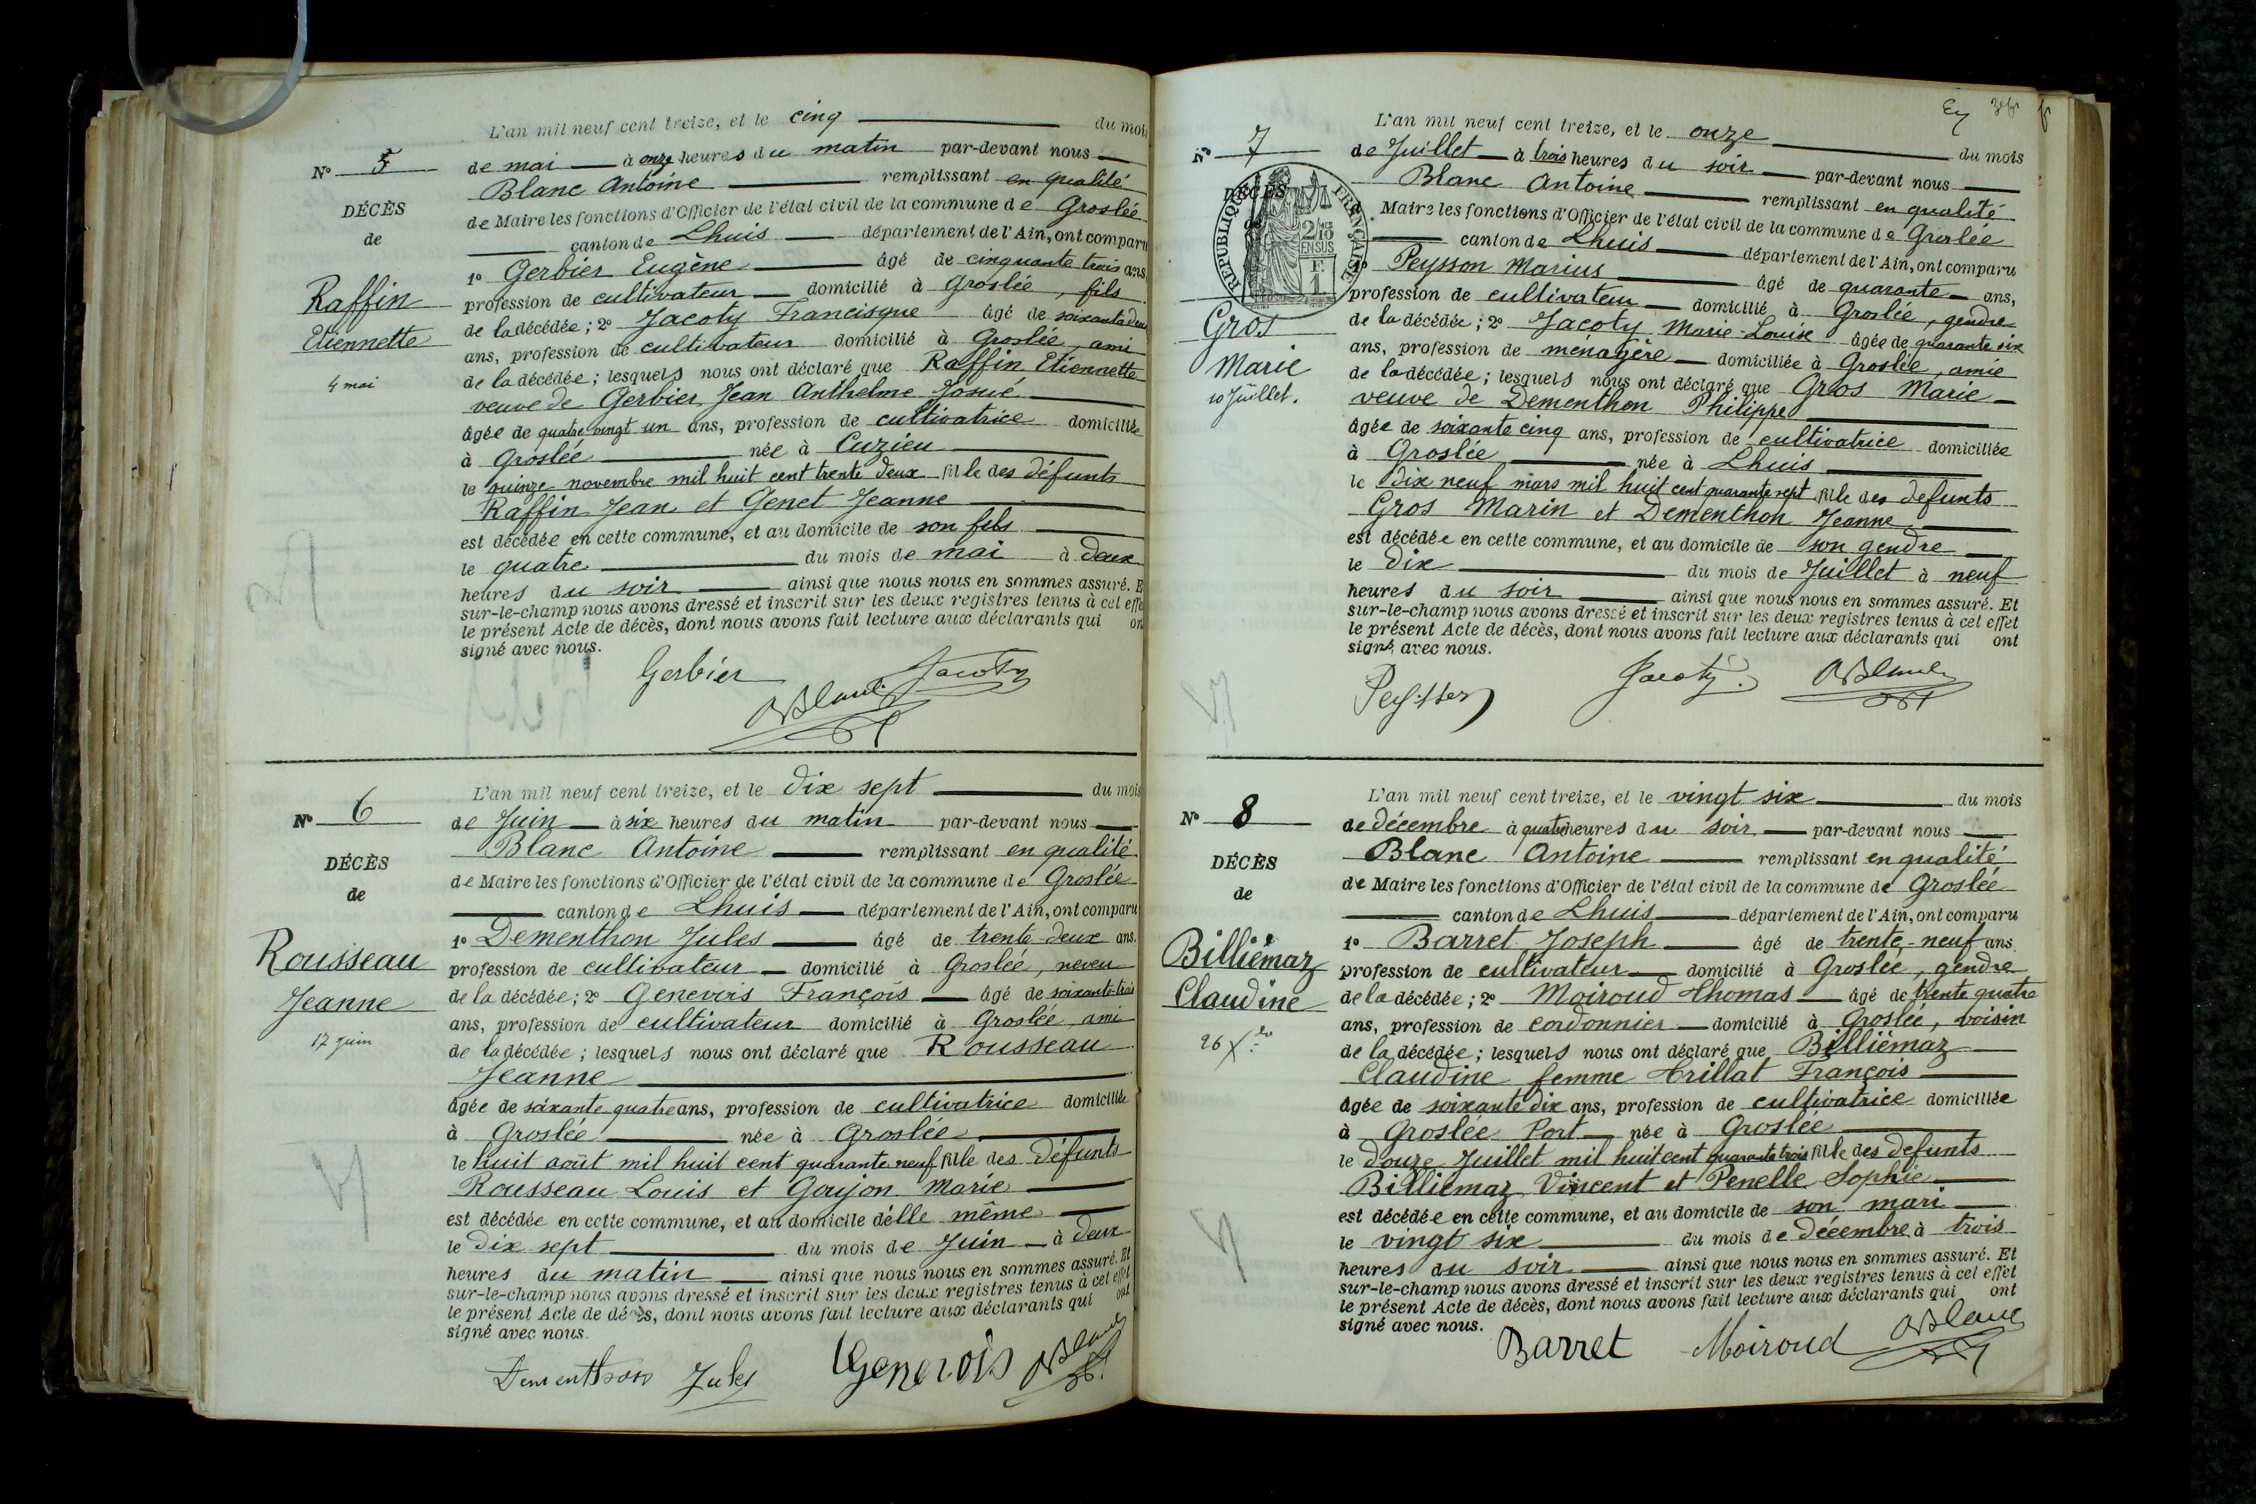 L'an mil neuf cent treize, et le cinq du mois
N° 5
de mai à onze heures du matin par-devant nous
Blanc Antoine remplissant en qualité
DÉCÈS
de Maire les fonctions d'Officier de l'état civil de la commune de Groslée
de
canton de Lhuis département de l'Ain, ont comparu
1° Gerbier Eugène âgé de cinquante trois ans
Raffin
profession de cultivateur domicilié à Groslée, fils
de la décédée; 2° Jacoty Francisque âgé de soixante deux
Etiennette
ans, profession de cultivateur domicilié à Groslée, ami
4 mai
de la décédée; lesquels nous ont déclaré que Raffin Etiennette
veuve de Gerbier Jean Anthelme Josué
âgée de quatre vingt un ans, profession de cultivatrice domiciliée
à Groslée née à Cuzieu
le quinze novembre mil huit cent trente deux fille des défunts
Raffin Jean et Genet Jeanne
est décédée en cette commune, et au domicile de son fils
le quatre du mois de mai à deux
heures du soir ainsi que nous nous en sommes assuré. E
sur-le-champ nous avons dressé et inscrit sur les deux registres tenus à cet effe
le présent Acte de décès, dont nous avons fait lecture aux déclarants qui on
signé avec nous.
Gerbier Jacoty
ABlanc
L'an mil neuf cent treize, et le dix sept du mois
N° 6
de Juin à six heures du matin par-devant nous
Blanc Antoine remplissant en qualité
DÉCÈS
de Maire les fonctions d'Officier de l'état civil de la commune de Groslée
de
canton de Lhuis département de l'Ain, ont comparu
1° Dementhon Jules âgé de trente-deux ans.
Rousseau
profession de cultivateur domicilié à Groslée, neveu
Jeanne
de la décédée; 2° Genevois François âgé de soixante-trois
ans, profession de cultivateur domicilié à Groslée, ami
17 juin
de la décédée; lesquels nous ont déclaré que Rousseau
Jeanne
âgée de soixante quatre ans, profession de cultivatrice domiciliée
à Groslée née à Groslée
le huit août mil huit cent quarante neuf fille des défunts
Rousseau Louis et Goujon Marie
est décédée en cette commune, et au domicile d'elle même
le dix sept du mois de Juin à deux
heures du matin ainsi que nous nous en sommes assuré. Et
sur-le-champ nous avons dressé et inscrit sur les deux registres tenus à cet effet
le présent Acte de décès, dont nous avons fait lecture aux déclarants qui ont
signé avec nous.
Dementhon Jules Genevois ABlanc
L'an mil neuf cent treize, et le onze du mois
N° 7
de Juillet à trois heures du soir par-devant nous
Blanc Antoine remplissant en qualité
DÉCÈS
RÉPUBLIQUE FRANÇAISE
2/10 EN SUS
E
1
Maire les fonctions d'Officier de l'état civil de la commune de Groslée
canton de Lhuis département de l'Ain, ont comparu
Peysson Marius âgé de quarante ans,
profession de cultivateur domicilié à Groslée, gendre
Gros
de la décédée; 2° Jacoty Marie-Louise âgée de quarante six
ans, profession de ménagère domiciliée à Groslée, amie
Marie
de la décédée; lesquels nous ont déclaré que Gros Marie
10 Juillet.
veuve de Dementhon Philippe
âgée de soixante cinq ans, profession de cultivatrice domiciliée
à Groslée née à Lhuis
le dix neuf mars mil huit cent quarante sept fille des défunts
Gros Marin et Dementhon Jeanne
est décédée en cette commune, et au domicile de son gendre
le dix du mois de Juillet à neuf
heures du soir ainsi que nous nous en sommes assuré. Et
sur-le-champ nous avons dressé et inscrit sur les deux registres tenus à cet effet
le présent Acte de décès, dont nous avons fait lecture aux déclarants qui ont
signé avec nous.
Peysson Jacoty ABlanc
L'an mil neuf cent treize, et le vingt six du mois
N° 8
de décembre à quatre heures du soir par-devant nous
Blanc Antoine remplissant en qualité
DÉCÈS
de Maire les fonctions d'Officier de l'état civil de la commune de Groslée
de
canton de Lhuis département de l'Ain, ont comparu
1° Barret Joseph âgé de trente-neuf ans
Billiémaz
profession de cultivateur domicilié à Groslée, gendre
Claudine
de la décédée; 2° Moiroud Thomas âgé de trente quatre
ans, profession de cordonnier domicilié à Groslée, voisin
26 Xbre
de la décédée; lesquels nous ont déclaré que Billiémaz
Claudine femme Trillat François
âgée de soixante dix ans, profession de cultivatrice domiciliée
à Groslée Port née à Groslée
le douze Juillet mil huit cent quarante trois fille des défunts
Billiémaz Vincent et Penelle Sophie
est décédée en cette commune, et au domicile de son mari
le vingt six du mois de décembre à trois
heures du soir ainsi que nous nous en sommes assuré. Et
sur-le-champ nous avons dressé et inscrit sur les deux registres tenus à cet effet
le présent Acte de décès, dont nous avons fait lecture aux déclarants qui ont
signé avec nous.
Barret Moiroud ABlanc